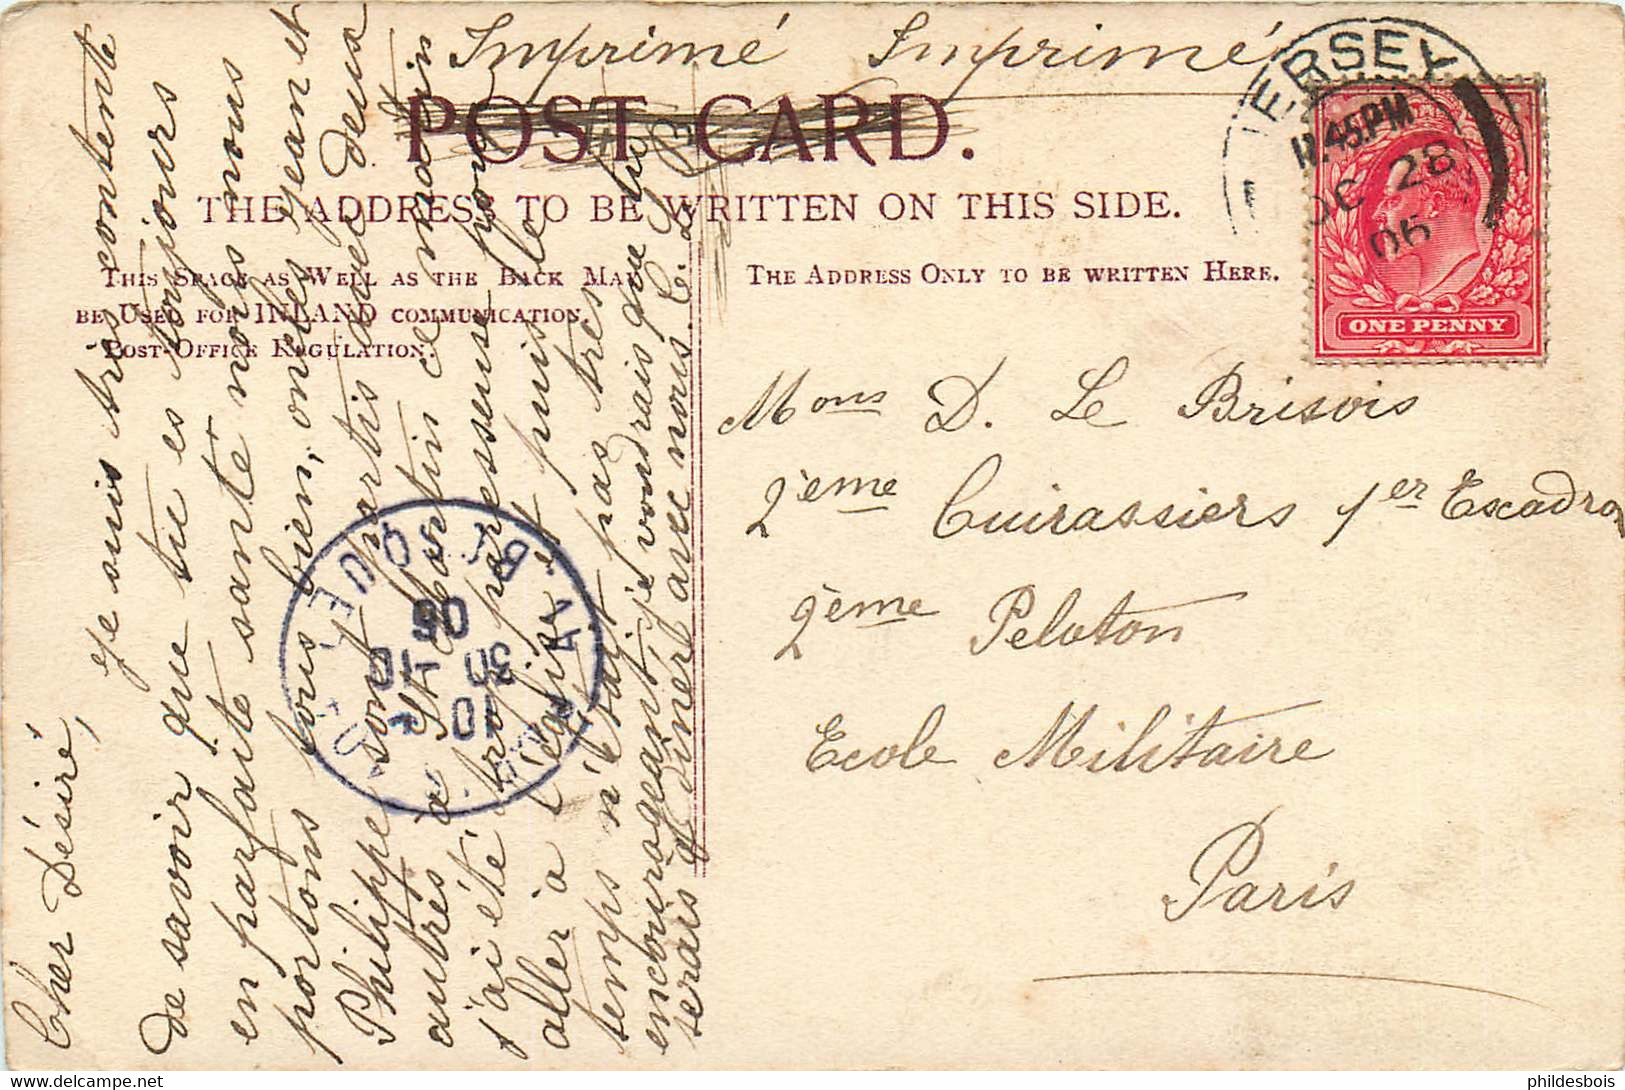 Imprimé Imprimé
POST CARD.
THE ADDRESS TO BE WRITTEN ON THIS SIDE.
THIS SPACE AS WELL AS THE BACK MAY
BE USED FOR INLAND COMMUNICATION.
POST-OFFICE REGULATION.
THE ADDRESS ONLY TO BE WRITTEN HERE.
JERSEY
12.45.PM
OC 28
06
ONE PENNY
Mons D. Le Brisois
2ème Cuirassiers 1er Escadron
2ème Peloton
Ecole Militaire
Paris
Cher Désiré,
Je suis très contente
de savoir que tu es toujours
en parfaite santé nous nous
portons tous bien, oncles Jean et
Philippe sont partis avec deux
autres à St Martin ce matin
j'ai été trop paresseuse pour
aller à l'église et puis le
temps n'était pas très
encourageant, je voudrais que tu
serais à diner avec nous. C. Le B
10
30 -10
06
phildesbois